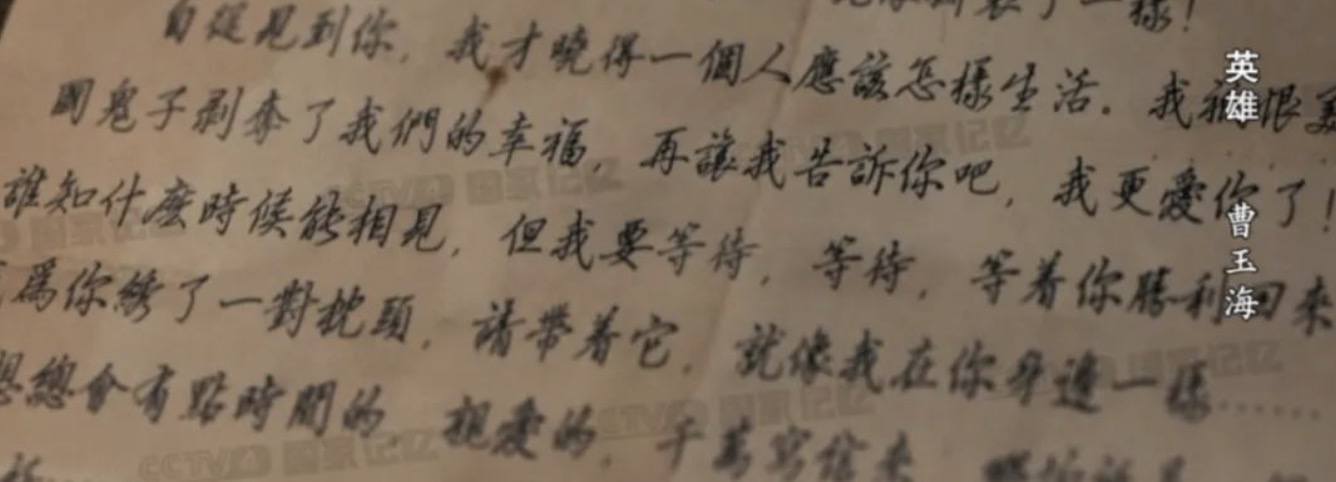 一樣！
自從見到你，我才曉得一個人應該怎樣生活。我痛恨美
國鬼子剥奪了我們的幸福，再讓我告訴你吧，我更愛你了！
誰知什麽時候能相見，但我要等待，等待，等着你勝利回來
爲你綉了一對枕頭，請帶着它，就像我在你身邊一樣……
想總會有點時間的，親愛的，千萬寫信來
英雄 曹玉海
CCTV4 国家记忆